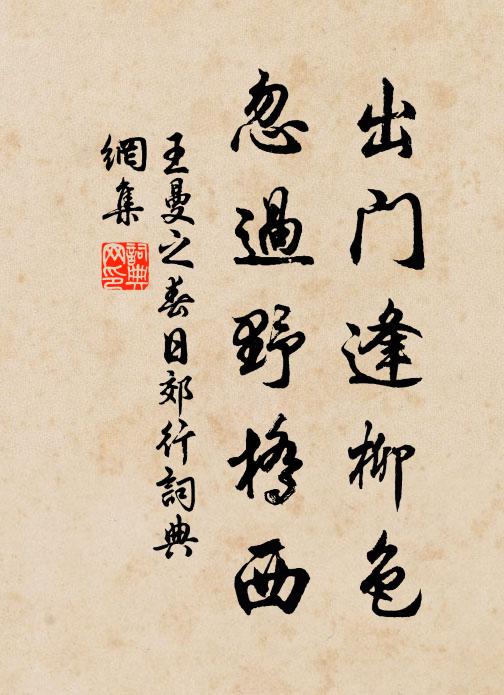 出门逢柳色
忽過野橋西
王曼之春日郊行詞典
網集
詞典网印